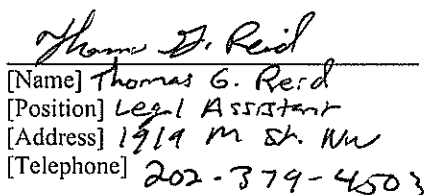 Thomas G. Reid
[Name] Thomas G. Reid
[Position] Legal Assistant
[Address] 1919 M St. NW
[Telephone] 202-379-4503